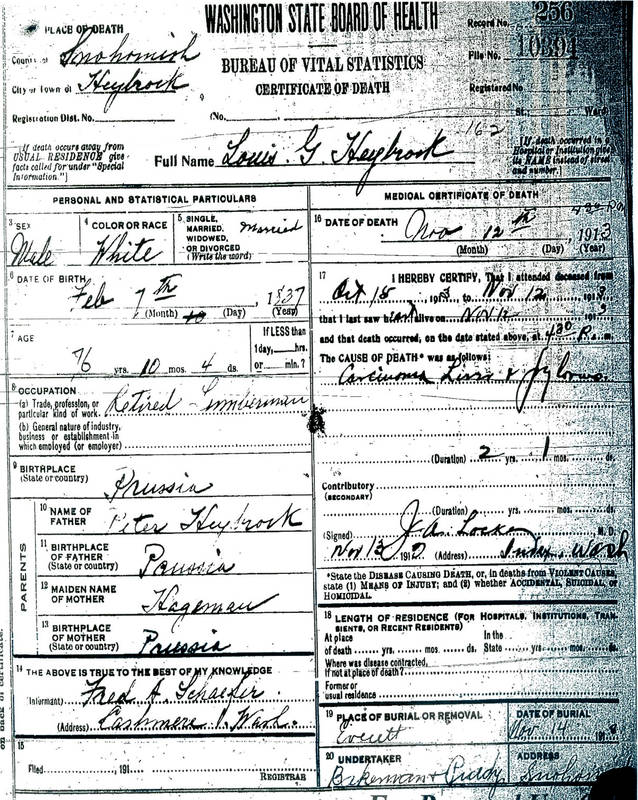 WASHINGTON STATE BOARD OF HEALTH
BUREAU OF VITAL STATISTICS
CERTIFICATE OF DEATH
PLACE OF DEATH
County of Snohomish
City or Town of Heybrock
Registration Dist. No.
(No. St.; Ward)
Record No. 256
File No. 10394
Registered No.
[If death occurs away from USUAL RESIDENCE give facts called for under "Special Information."]
Full Name Louis G Heybrock
162
[If death occurred in Hospital or Institution give its NAME instead of street and number.]
PERSONAL AND STATISTICAL PARTICULARS
3 SEX
Male
4 COLOR OR RACE
White
5 SINGLE, MARRIED, WIDOWED, OR DIVORCED (Write the word)
Married
6 DATE OF BIRTH
Feb 7th 1837
(Month) (Day) (Year)
7 AGE
76 yrs. 10 mos. 4 ds.
If LESS than 1 day, hrs. or min.?
8 OCCUPATION
(a) Trade, profession, or particular kind of work. Retired Lumberman
(b) General nature of industry, business or establishment in which employed (or employer)
9 BIRTHPLACE
(State or country) Prussia
PARENTS
10 NAME OF FATHER Peter Heybrock
11 BIRTHPLACE OF FATHER
(State or country) Prussia
12 MAIDEN NAME OF MOTHER Hageman
13 BIRTHPLACE OF MOTHER
(State or country) Prussia
14 THE ABOVE IS TRUE TO THE BEST OF MY KNOWLEDGE
(Informant) Fred A. Schaefer
(Address) Cashmere Wash.
15
Filed 191
REGISTRAR
MEDICAL CERTIFICATE OF DEATH
16 DATE OF DEATH Nov 12th 1913
(Month) (Day) (Year)
17 I HEREBY CERTIFY, That I attended deceased from
Oct 15 1913, to Nov 12 1913
that I last saw h alive on Nov 12 1913
and that death occurred, on the date stated above, at 4:30 P. m.
The CAUSE OF DEATH* was as follows:
Carcinoma
(Duration) 2 yrs. 1 mos. ds.
Contributory
(SECONDARY)
(Duration) yrs. mos. ds.
(Signed) M. D.
Nov 13 191 (Address) Index, Wash
*State the DISEASE CAUSING DEATH, or, in deaths from VIOLENT CAUSES, state (1) MEANS OF INJURY; and (2) whether ACCIDENTAL, SUICIDAL, or HOMICIDAL.
18 LENGTH OF RESIDENCE (FOR HOSPITALS, INSTITUTIONS, TRANSIENTS, OR RECENT RESIDENTS)
At place of death yrs. mos. ds. In the State yrs. mos. ds.
Where was disease contracted, If not at place of death?
Former or usual residence
19 PLACE OF BURIAL OR REMOVAL
Everett
DATE OF BURIAL
Nov 14 1913
20 UNDERTAKER
ADDRESS